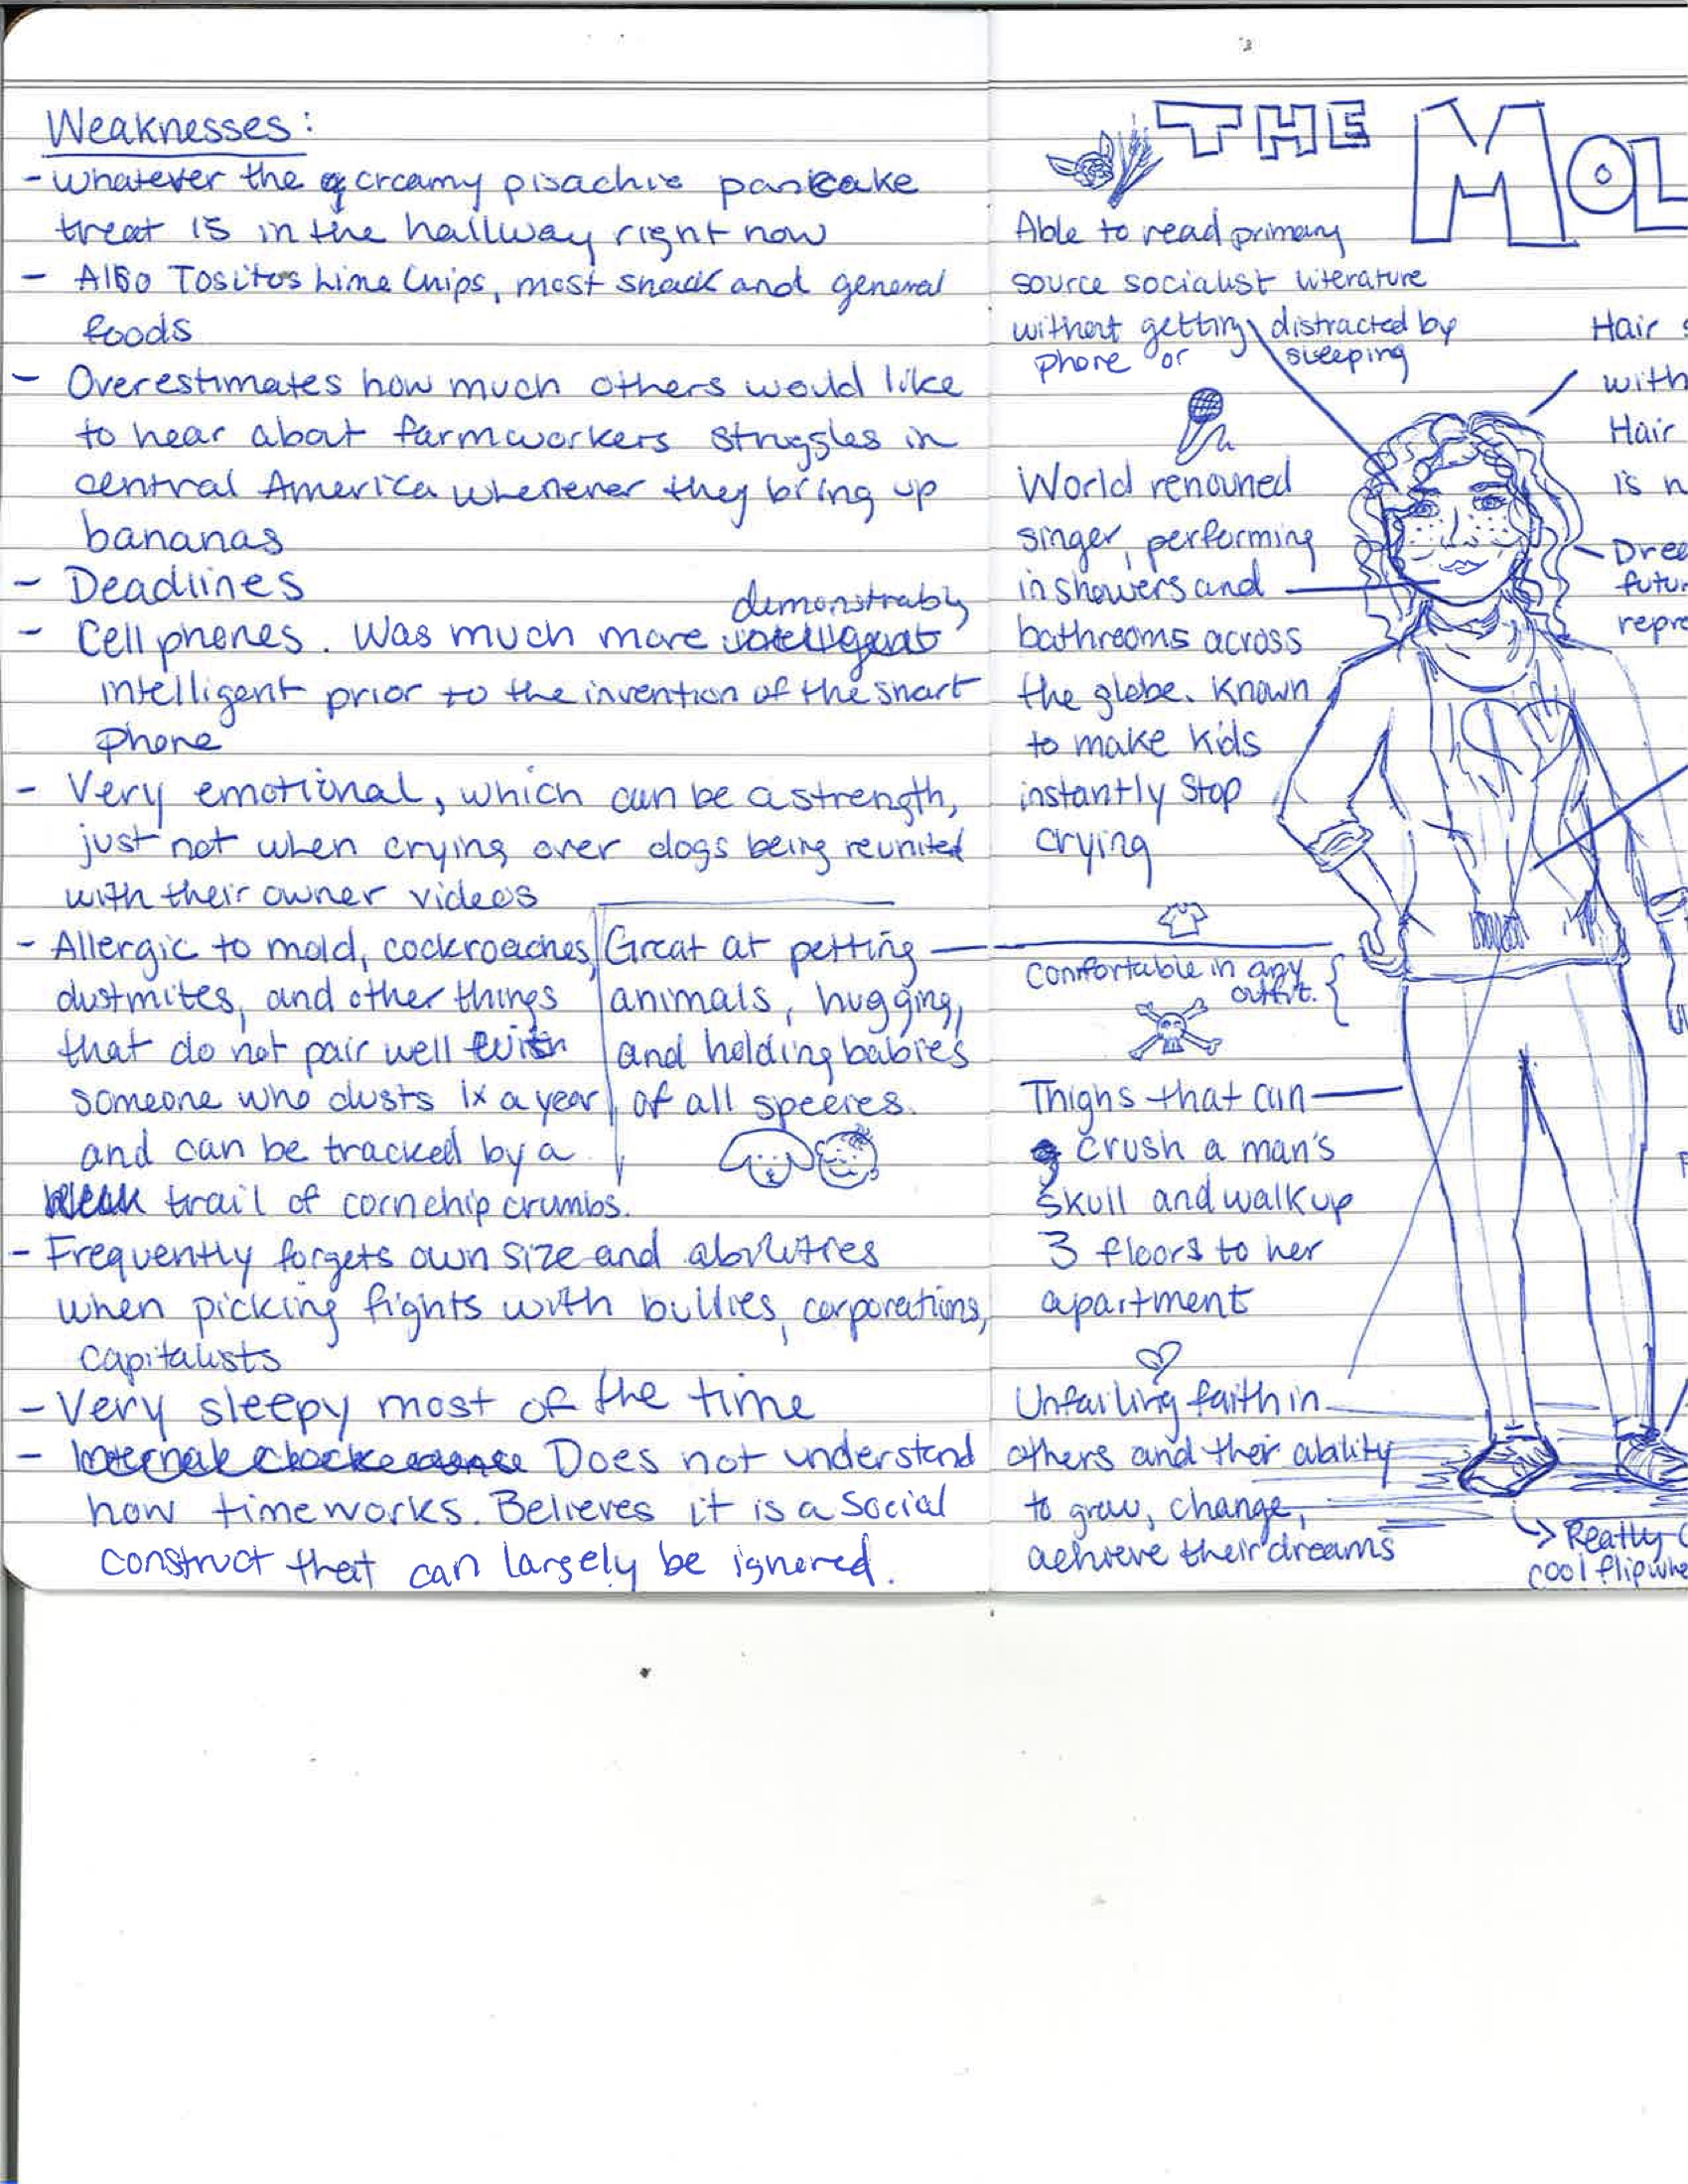 Weaknesses:
- whatever the creamy pisachio pancake
treat is in the hallway right now
- Also Tositos Lime Chips, most snack and general
foods
- Overestimates how much others would like
to hear about farmworkers struggles in
central America whenever they bring up
bananas
- Deadlines
demonstrably
- Cell phones. Was much more
intelligent prior to the invention of the smart
phone
- Very emotional, which can be a strength,
just not when crying over dogs being reunited
with their owner videos
- Allergic to mold, cockroaches,
dustmites, and other things
that do not pair well with
someone who dusts 1x a year
and can be tracked by a
trail of cornchip crumbs.
Great at petting
animals, hugging,
and holding babies
of all species.
- Frequently forgets own size and abilities
when picking fights with bullies, corporations,
capitalists
- Very sleepy most of the time
- Does not understand
how time works. Believes it is a social
construct that can largely be ignored.
THE MOL
Able to read primary
source socialist literature
without getting distracted by
phone or sleeping
World renouned
singer, performing
in showers and
bathrooms across
the globe. Known
to make kids
instantly stop
crying
Comfortable in any
outfit.
Thighs that can
crush a man's
skull and walk up
3 floors to her
apartment
Unfailing faith in
others and their ability
to grow, change,
achieve their dreams
Hair
with
Hair
is n
futur
repre
Really
cool flip